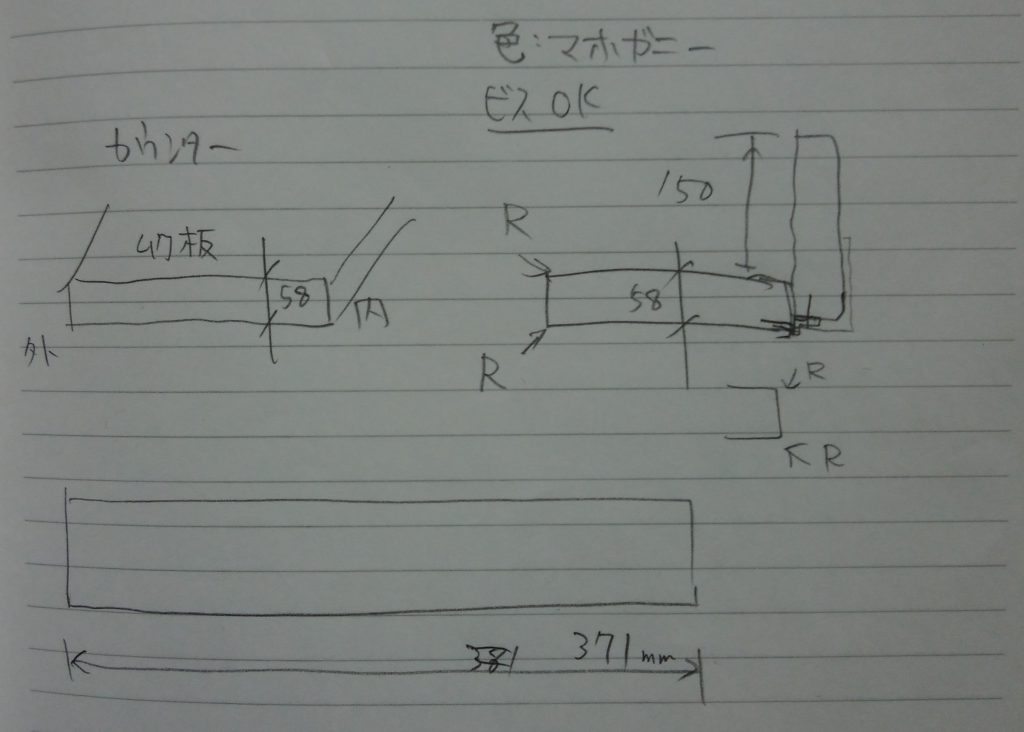 色:マホガニー
ビス OK
カウンター
150
R
板
58
58
内
外
R
R
R
371mm